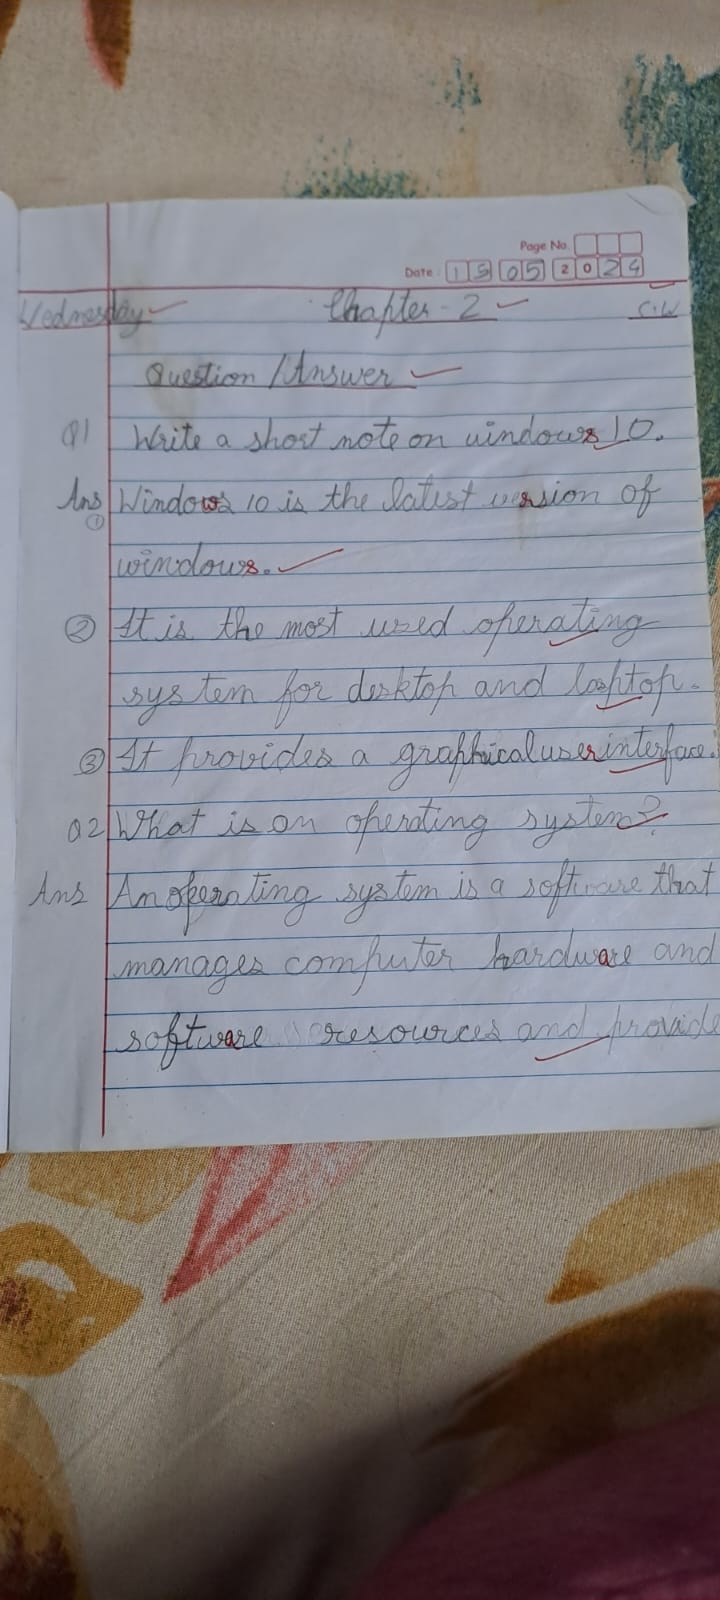 Page No.
Date: 15 05 2024
Wednesday Chapter-2 C.W
Question/Answer
Q1 Write a short note on windows 10.
Ans Windows 10 is the latest version of
① windows.
② It is the most used operating
system for desktop and laptop.
③ It provides a graphical user interface.
Q2 What is an operating system?
Ans An operating system is a software that
manages computer hardware and
software resources and provide